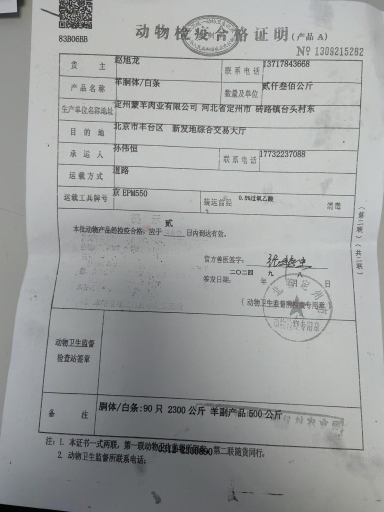 83B06BB
动物检疫合格证明(产品 A)
№ 1309215282
货 主 赵旭龙 联系电话 13717843668
产品名称 羊胴体/白条 数量及单位 贰仟叁佰公斤
生产单位名称地址 定州蒙羊肉业有限公司 河北省定州市 砖路镇台头村东
目的地 北京市丰台区 新发地综合交易大厅
承运人 孙伟恒 联系电话 17732237088
运载方式 道路
运载工具牌号 京 EPM550 装运前经 0.5%过氧乙酸 消毒
本批动物产品经检疫合格,应于 贰 日内到达有效。
官方兽医签字:
签发日期: 二〇二四 年 九 月 八 日
(动物卫生监督所检疫专用章)
动物卫生监督
检查站签章
备 注 胴体/白条:90 只 2300 公斤 羊副产品 500 公斤
注:1. 本证书一式两联,第一联动物卫生监督所留存,第二联随货同行。
2. 动物卫生监督所联系电话: 0312-2300890
(第二联)(共二联)